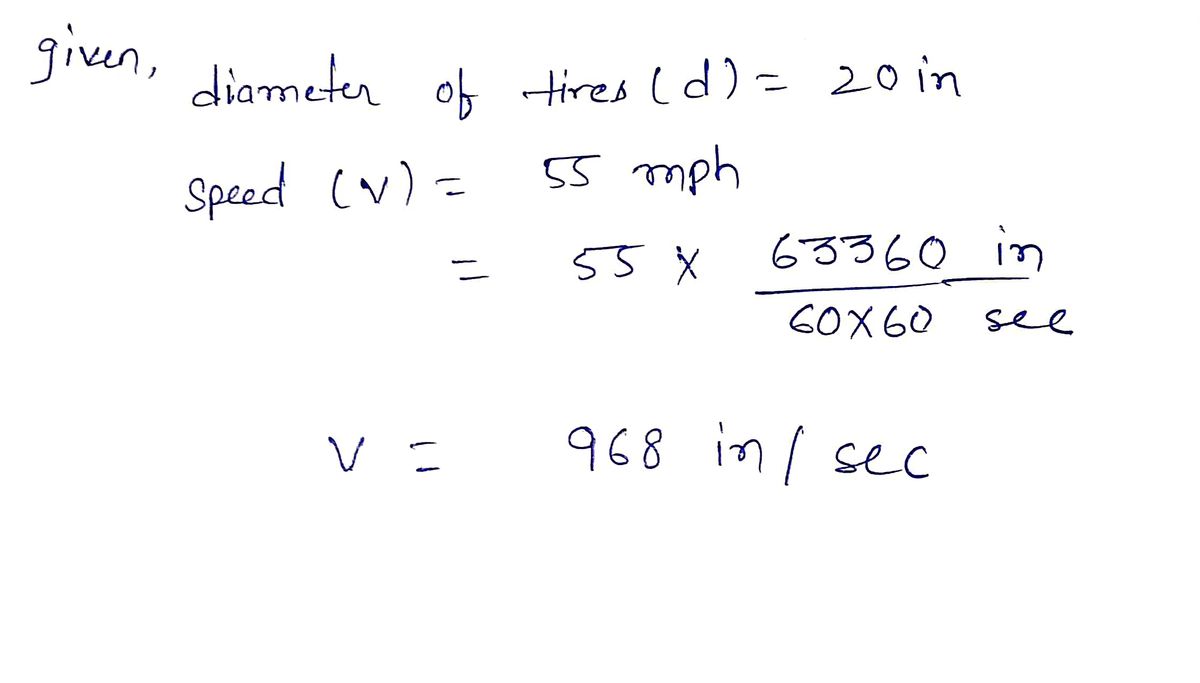 given,
diameter of tires (d) = 20 in
speed (v) = 55 mph
= 55 x 63360 in / 60x60 sec
v = 968 in / sec